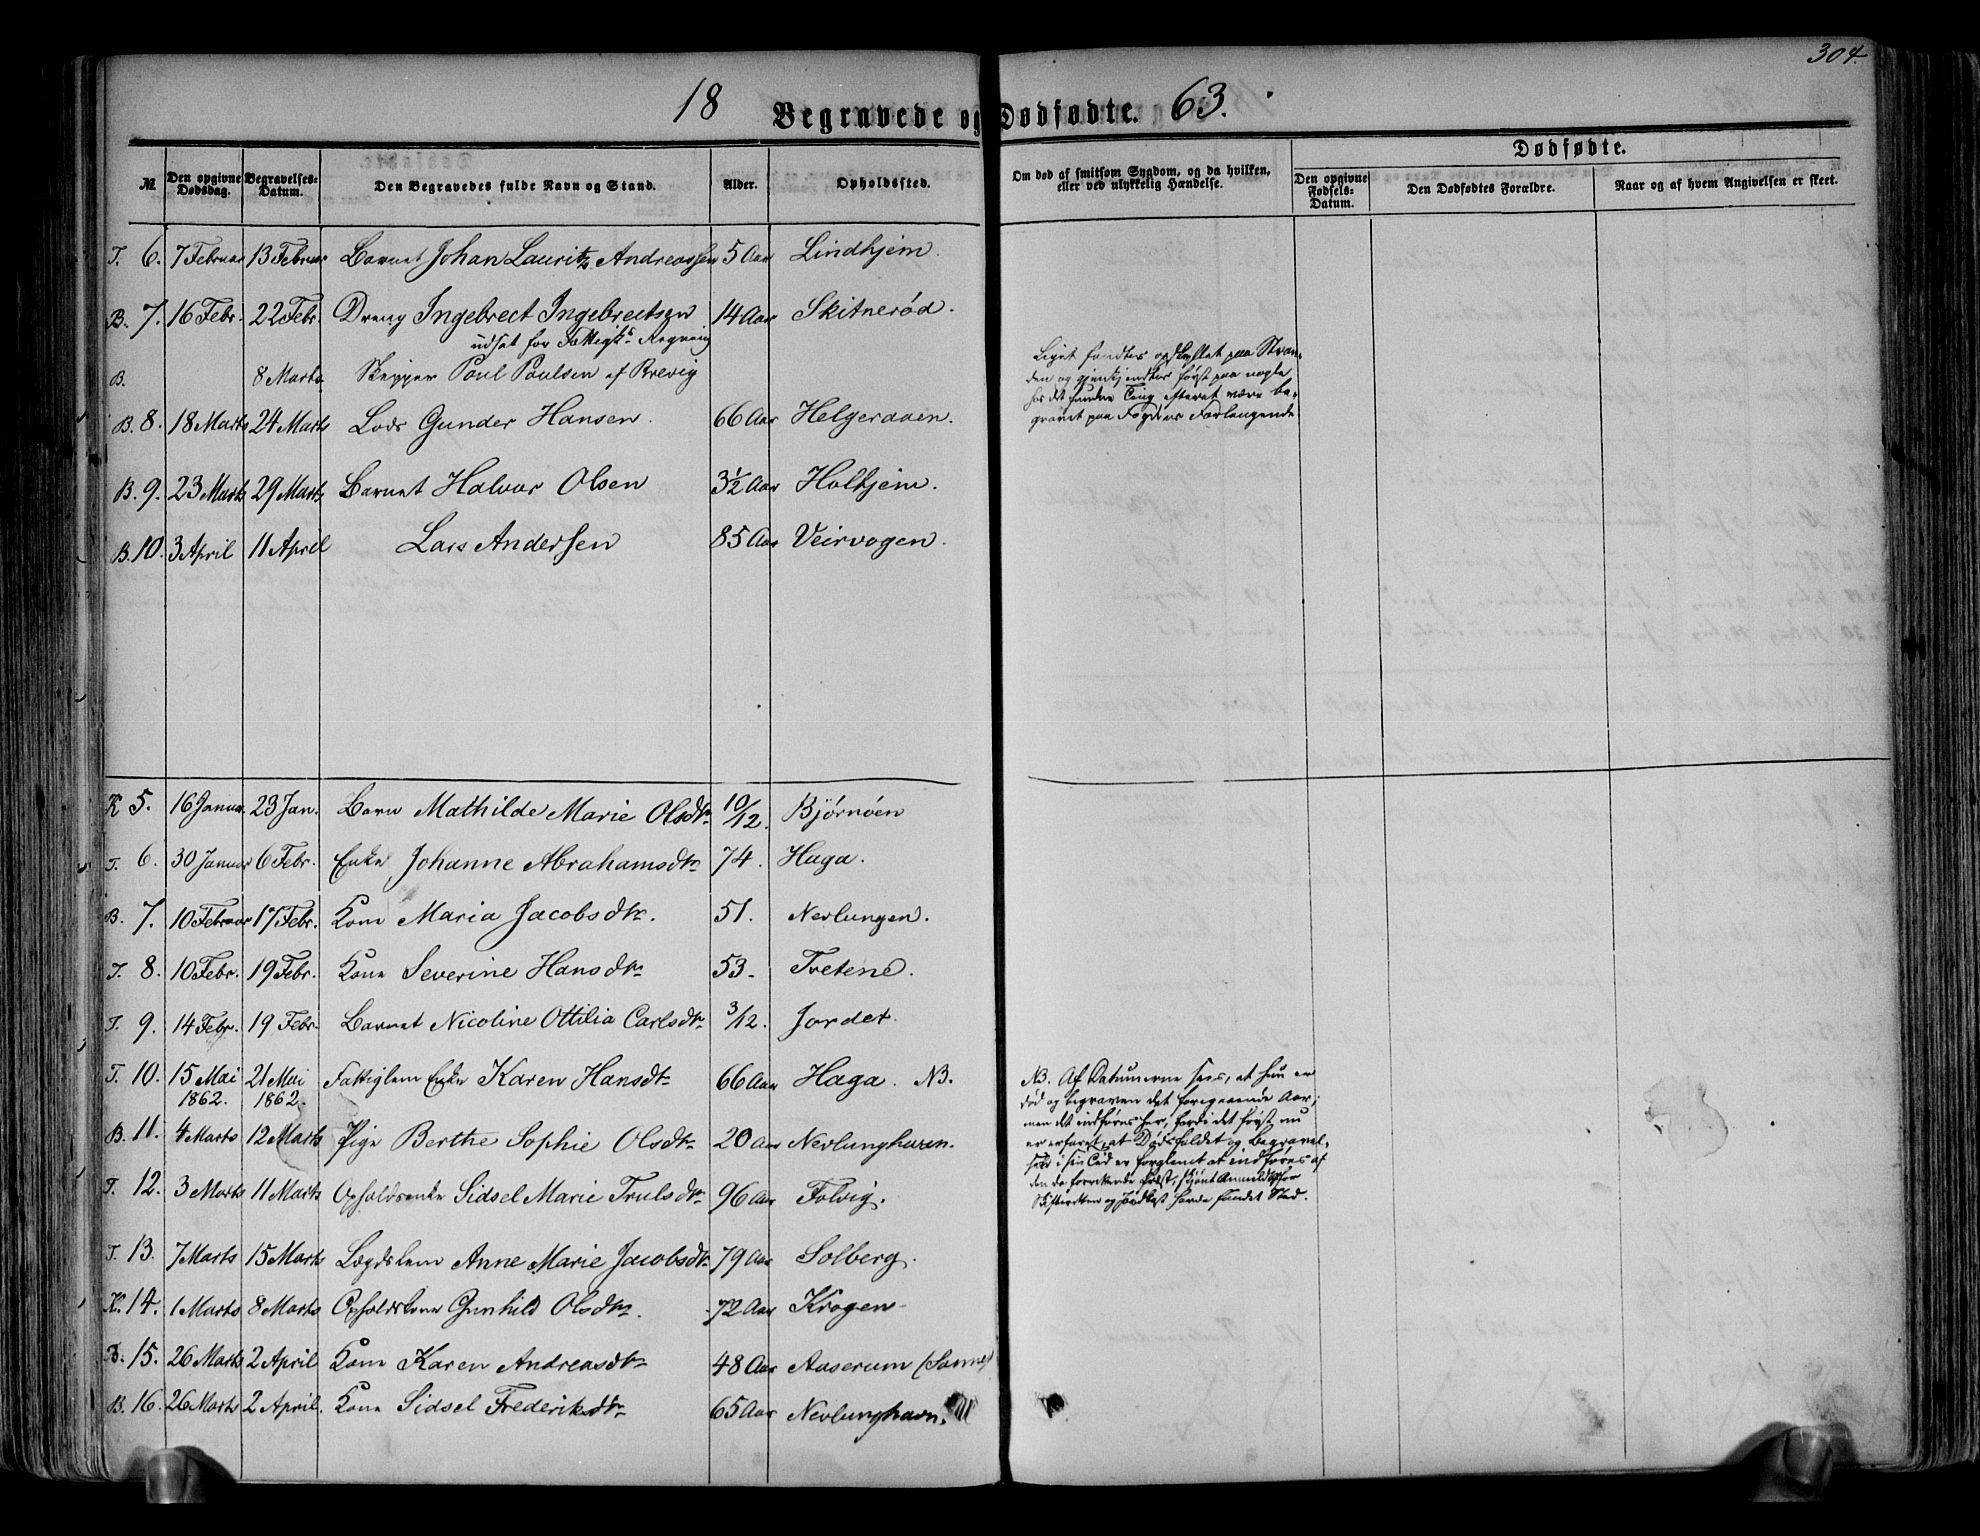 304.
18 Begravede og Dødfødte. 63.
№ Den opgivne Dødsdag. Begravelses-Datum. Den Begravedes fulde Navn og Stand. Alder. Opholdssted. Om død af smitsom Sygdom, og da hvilken, eller ved ulykkelig Hændelse. Dødfødte. Den opgivne Fødsels-Datum. Den Dødfødtes Forældre. Naar og af hvem Angivelsen er skeet.
T. 6. 7 Februar 13 Februar Barnet Johan Lauritz Andreassen 5 Aar Lindhjem.
B. 7. 16 Febr. 22 Febr. Dreng Ingebrect Ingebrectsen 14 Aar Skitnerød.
udsat for Fattigk: Regning
B. 8 Marts Skipper Poul Poulsen af Brevig
B. 8. 18 Marts 24 Marts Lods Gunder Hansen. 66 Aar Helgeraaen.
B. 9. 23 Marts 29 Marts Barnet Halvor Olsen 3½ Aar Holtjem.
B. 10. 3 April 11 April Lars Andersen 85 Aar Veirvogen.
Liget fandtes opskyllet paa Stran-
den og gjenkjendtes først paa nogle
hos det fundne Ting efterat være be-
gravet paa Fogdens Forlangende
K 5. 16 Januar. 23 Jan. Barn Mathilde Marie Olsdtr 10/12. Bjørnøen
T. 6. 30 Januar 6 Febr. Enke Johanne Abrahamsdtr 74. Haga.
B. 7. 10 Februar 17 Febr. Kone Maria Jacobsdtr. 51. Nevlungen.
T. 8. 10 Febr. 19 Febr. Kone Severine Hansdtr 53. Tvetene.
T. 9. 14 Febr. 19 Febr. Barnet Nicoline Ottilia Carlsdtr 3/12. Jordet.
T. 10. 15 Mai 1862. 21 Mai 1862. Fattiglem Enke Karen Hansdtr 66 Aar Haga. NB.
B. 11. 4 Marts 12 Marts Pige Berthe Sophie Olsdtr 20 Aar Nevlunghavn.
T. 12. 3 Marts 11 Marts Opholdsenke Sidsel Marie Trulsdtr 96 Aar Folvig.
T. 13. 7 Marts 15 Marts Lægdslem Anne Marie Jacobsdtr 79 Aar Solberg.
K. 14. 1 Marts 8 Marts Opholdskone Gunhild Olsdtr. 72 Aar Krogen
B. 15. 26 Marts 2 April Kone Karen Andreasdtr 48 Aar Aaserum
B. 16. 26 Marts 2 April. Kone Sidsel Frederiksdtr 65 Aar Nevlunghavn.
NB. Af Datumerne sees, at hun er
død og begraven det foregaaende Aar;
men det indføres her, fordi det først nu
er erfaret, at Dødsfaldet og Begravel-
sen i sin Tid er forglemt at indføres af
den da Præst, skjønt Anmeldelse for
Skifteretten og Jordkast havde fundet Sted.